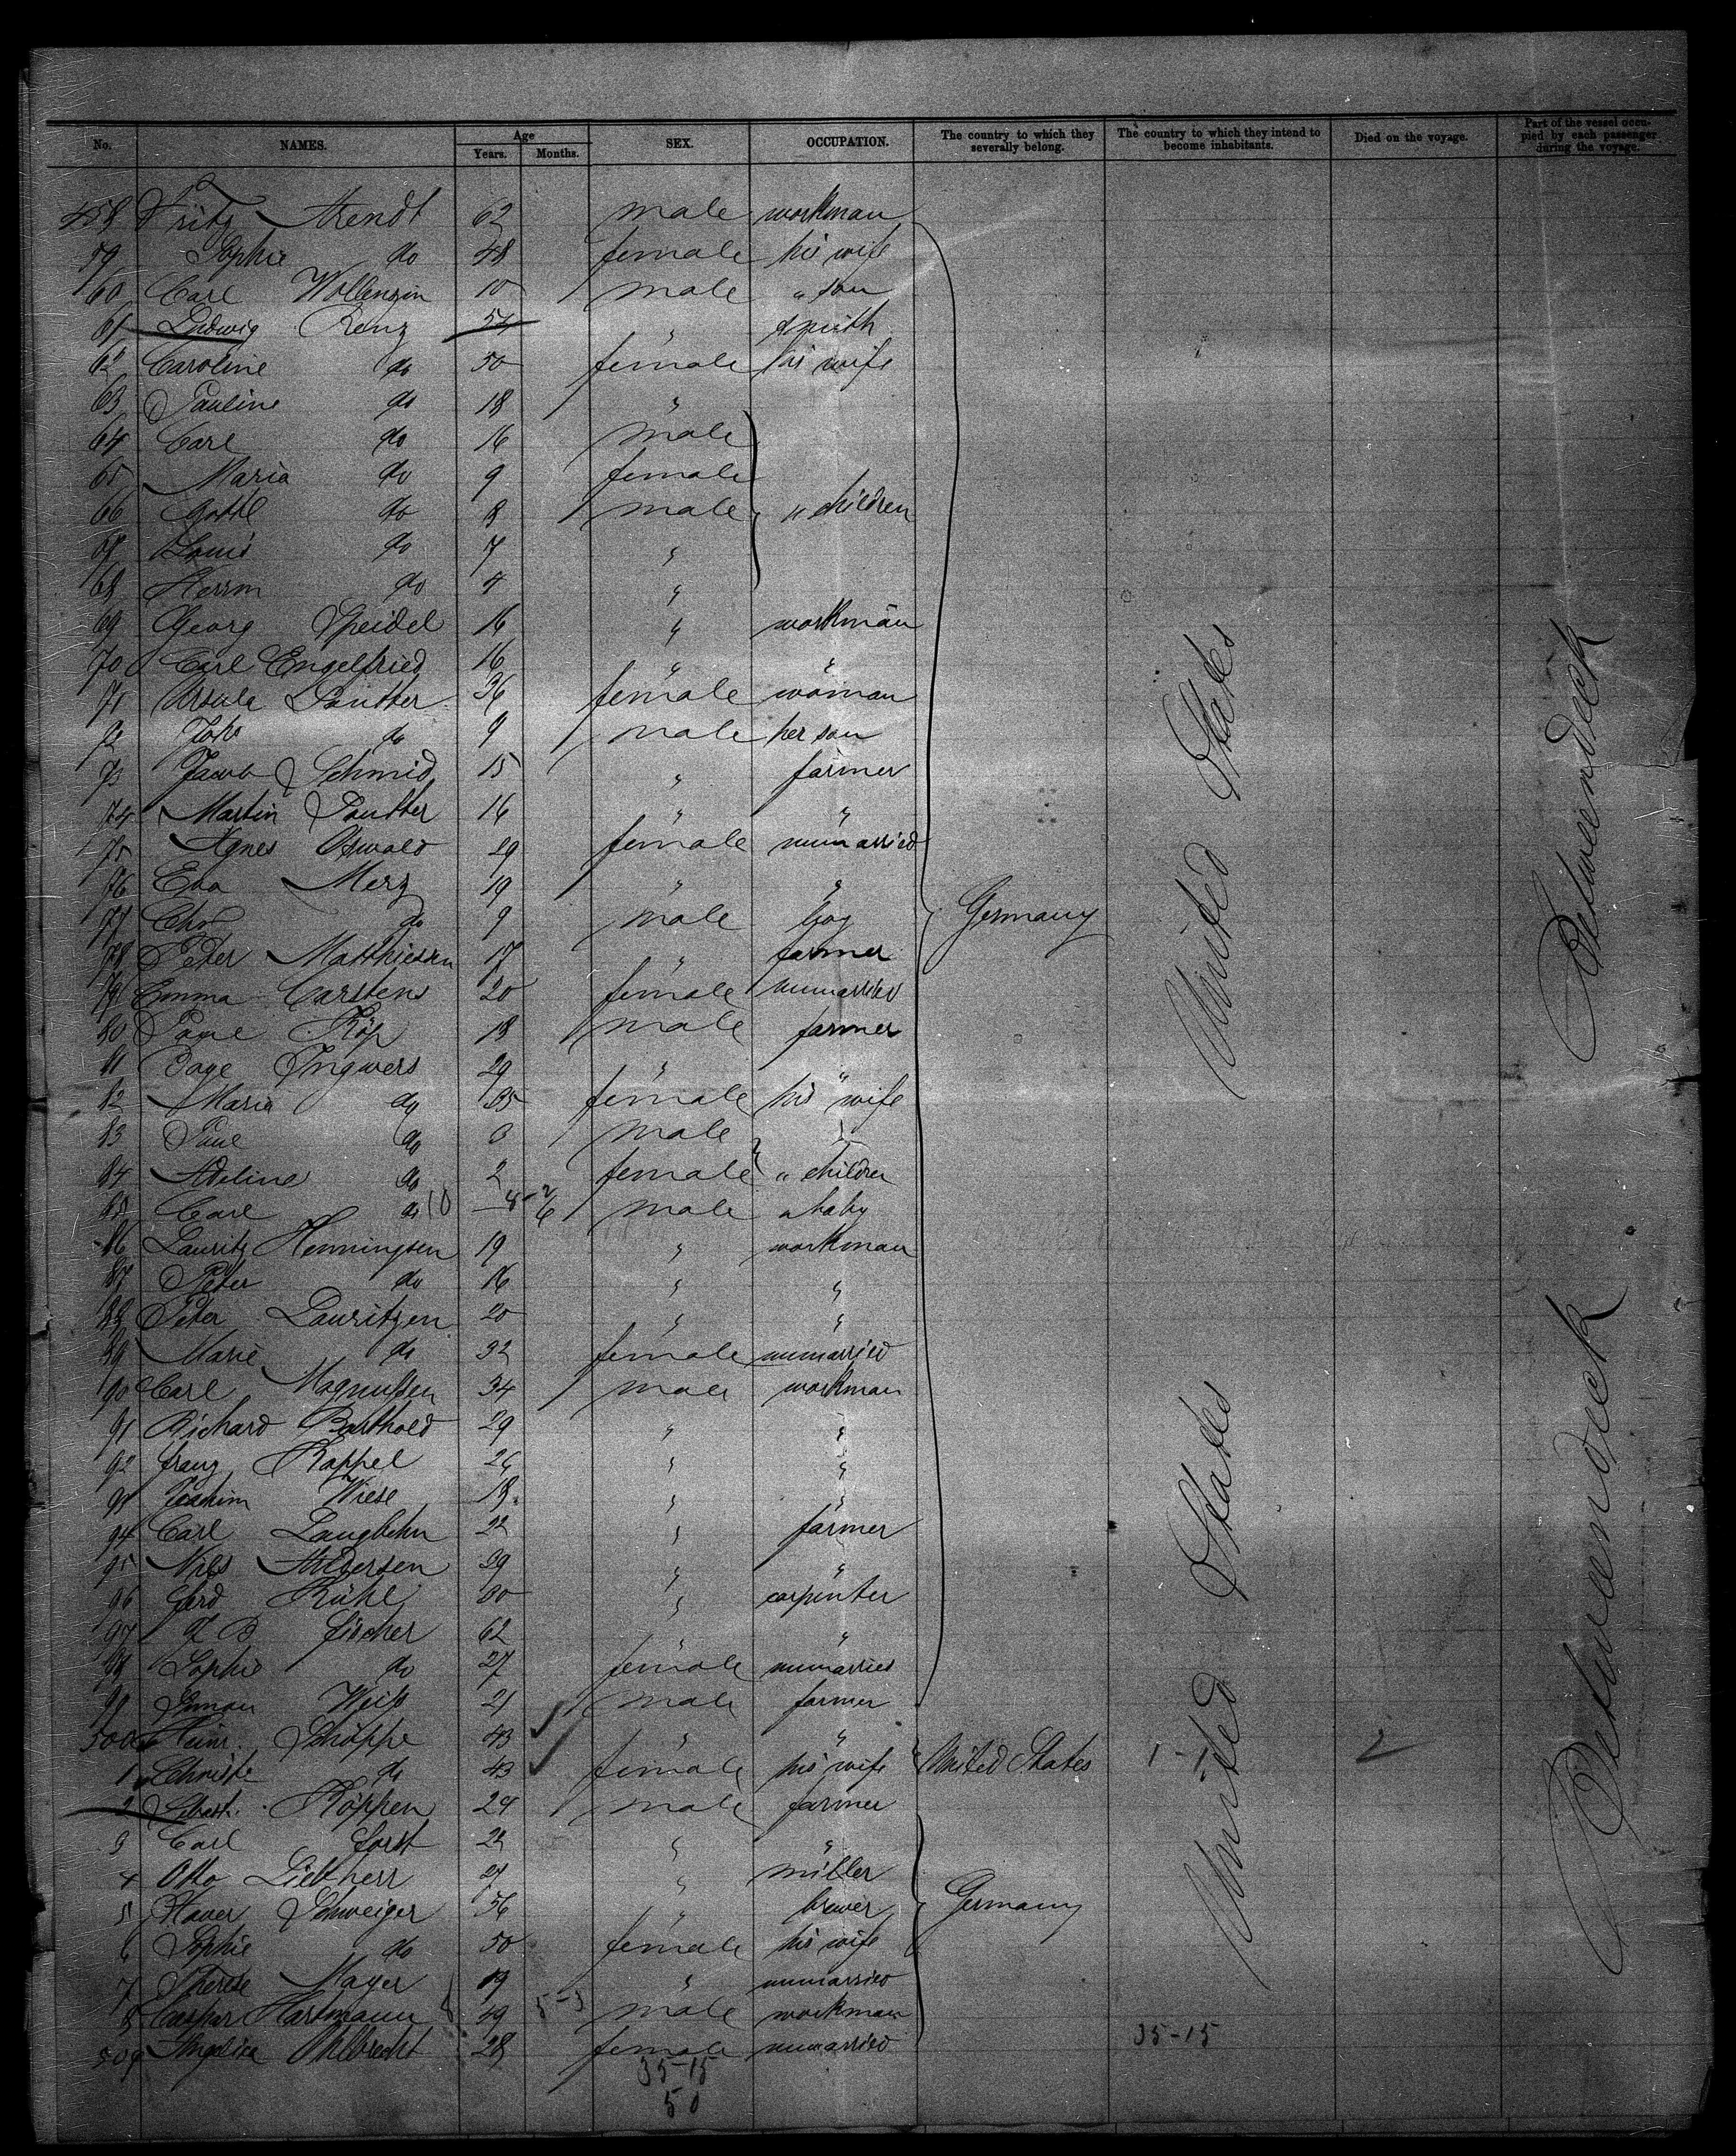 No. NAMES. Age Years. Months. SEX. OCCUPATION. The country to which they severally belong. The country to which they intend to become inhabitants. Died on the voyage. Part of the vessel occupied by each passenger during the voyage.
458 Fritz Arendt 62 male workman
59 Sophie do 48 female his wife
60 Carl Wollenzin 10 male " son
61 Ludwig Renz 54 " smith
62 Caroline do 50 female his wife
63 Pauline do 18 "
64 Carl do 16 male
65 Maria do 9 female
66 Gottl do 8 male " children
67 Louis do 7 "
68 Herrm do 4 "
69 Georg Speidel 16 " workman
70 Carl Engelfried 16 " "
71 Ursula Lautter 36 female woman
72 Joh do 9 male her son
73 Jacob Schmid 15 " farmer
74 Martin Sautter 16 " "
75 Agnes Oswald 29 female unmarried
76 Eva Merz 19 " "
77 Chr do 9 male boy Germany
78 Peter Matthiesen 17 " farmer
79 Emma Carstens 20 female unmarried
80 Paul Köp 18 male farmer
81 Ingwers 29 " "
82 Marie do 35 female his wife
83 Paul do 3 male
84 Adeline do 2 female " children
85 Carl do 10 6 male " baby
86 Lauritz Henningsen 19 " workman
87 Peter do 16 " "
88 Peter Lauritzen 20 " "
89 Marie do 32 female unmarried
90 Carl Magnussen 34 male workman
91 Richard Barthold 29 " "
92 Franz Kappel 26 " "
93 Joachim Wiese 18 " "
94 Carl Langbehn 22 " farmer
95 Nils Andersen 29 " "
96 Ferd Rühl 30 " carpenter
97 Fischer 62 " "
98 Sophie do 27 female unmarried
99 Weiss 21 male farmer
500 Heinr. Schöppe 43 " "
1 Christe do 43 female his wife United States 1-1 2
2 Sebast. Köppen 24 male farmer
3 Carl Forst 22 " "
4 Otto Liebherr 27 " miller
5 Xaver Schweiger 56 " brewer Germany
6 Sophie do 50 female his wife
7 Therese Mayer 19 " unmarried
8 Caspar Hartmann 49 5-3 male workman
509 Angelica Ohlbrecht 28 female unmarried
35-15
50
35-15
United States
United States
Betweendeck
Betweendeck